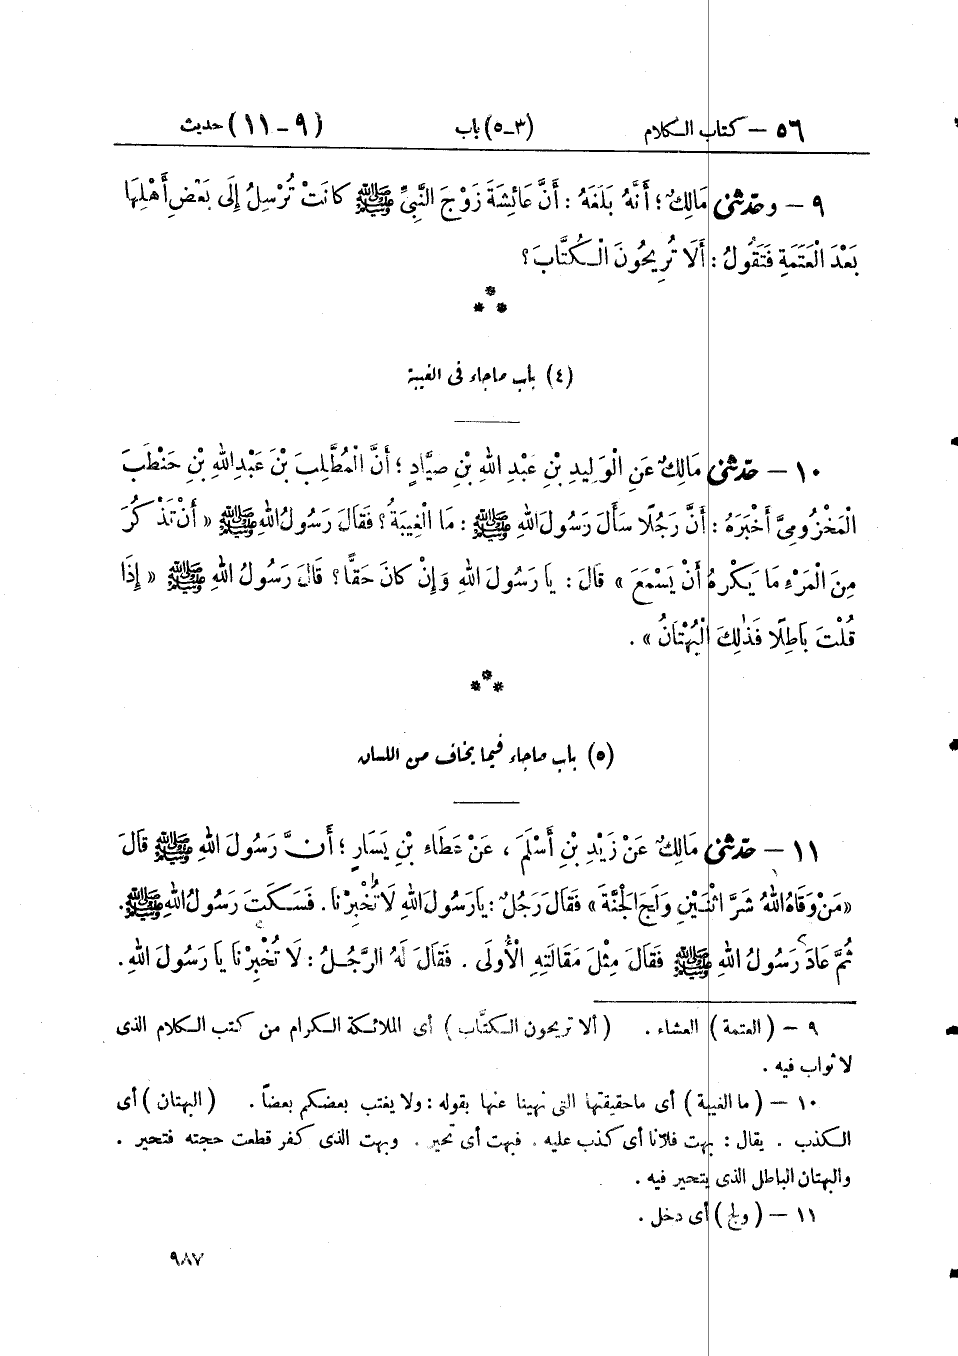 ٥٦ – كتاب الكلام (٣–٥) باب (٩–١١) حديث
٩ – وحَدَّثَنِي مَالِكٌ؛ أَنَّهُ بَلَغَهُ: أَنَّ عَائِشَةَ زَوْجَ النَّبِيِّ ﷺ كَانَتْ تُرْسِلُ إِلَى بَعْضِ أَهْلِهَا
بَعْدَ الْعَتَمَةِ فَتَقُولُ: أَلَا تُرِيحُونَ الْكُتَّابَ؟
* * *
(٤) باب ماجاء فى الغيبة
١٠ – حَدَّثَنِي مَالِكٌ عَنِ الْوَلِيدِ بْنِ عَبْدِ اللهِ بْنِ صَيَّادٍ؛ أَنَّ الْمُطَّلِبَ بْنَ عَبْدِ اللهِ بْنِ حَنْطَبَ
الْمَخْزُومِيَّ أَخْبَرَهُ: أَنَّ رَجُلًا سَأَلَ رَسُولَ اللهِ ﷺ: مَا الْغِيبَةُ؟ فَقَالَ رَسُولُ اللهِ ﷺ «أَنْ تَذْكُرَ
مِنَ الْمَرْءِ مَا يَكْرَهُ أَنْ يَسْمَعَ» قَالَ: يَا رَسُولَ اللهِ وَإِنْ كَانَ حَقًّا؟ قَالَ رَسُولُ اللهِ ﷺ «إِذَا
قُلْتَ بَاطِلًا فَذٰلِكَ الْبُهْتَانُ».
* * *
(٥) باب ماجاء فيما يخاف من اللسان
١١ – حَدَّثَنِي مَالِكٌ عَنْ زَيْدِ بْنِ أَسْلَمَ، عَنْ عَطَاءِ بْنِ يَسَارٍ؛ أَنَّ رَسُولَ اللهِ ﷺ قَالَ
«مَنْ وَقَاهُ اللهُ شَرَّ اثْنَيْنِ وَلَجَ الْجَنَّةَ» فَقَالَ رَجُلٌ: يَا رَسُولَ اللهِ لَا تُخْبِرْنَا. فَسَكَتَ رَسُولُ اللهِ ﷺ.
ثُمَّ عَادَ رَسُولُ اللهِ ﷺ فَقَالَ مِثْلَ مَقَالَتِهِ الْأُولَى. فَقَالَ لَهُ الرَّجُلُ: لَا تُخْبِرْنَا يَا رَسُولَ اللهِ.
٩ – (العتمة) العشاء. (ألا تريحون الكتَّاب) أى الملائكة الكرام من كتب الكلام الذى
لا ثواب فيه.
١٠ – (ما الغيبة) أى ماحقيقتها التى نهينا عنها بقوله: ولا يغتب بعضكم بعضاً. (البهتان) أى
الكذب. يقال: بهت فلانا أى كذب عليه. فبهت أى تحير. وبهت الذى كفر قطعت حجته فتحير.
والبهتان الباطل الذى يتحير فيه.
١١ – (ولج) أى دخل.
٩٨٧